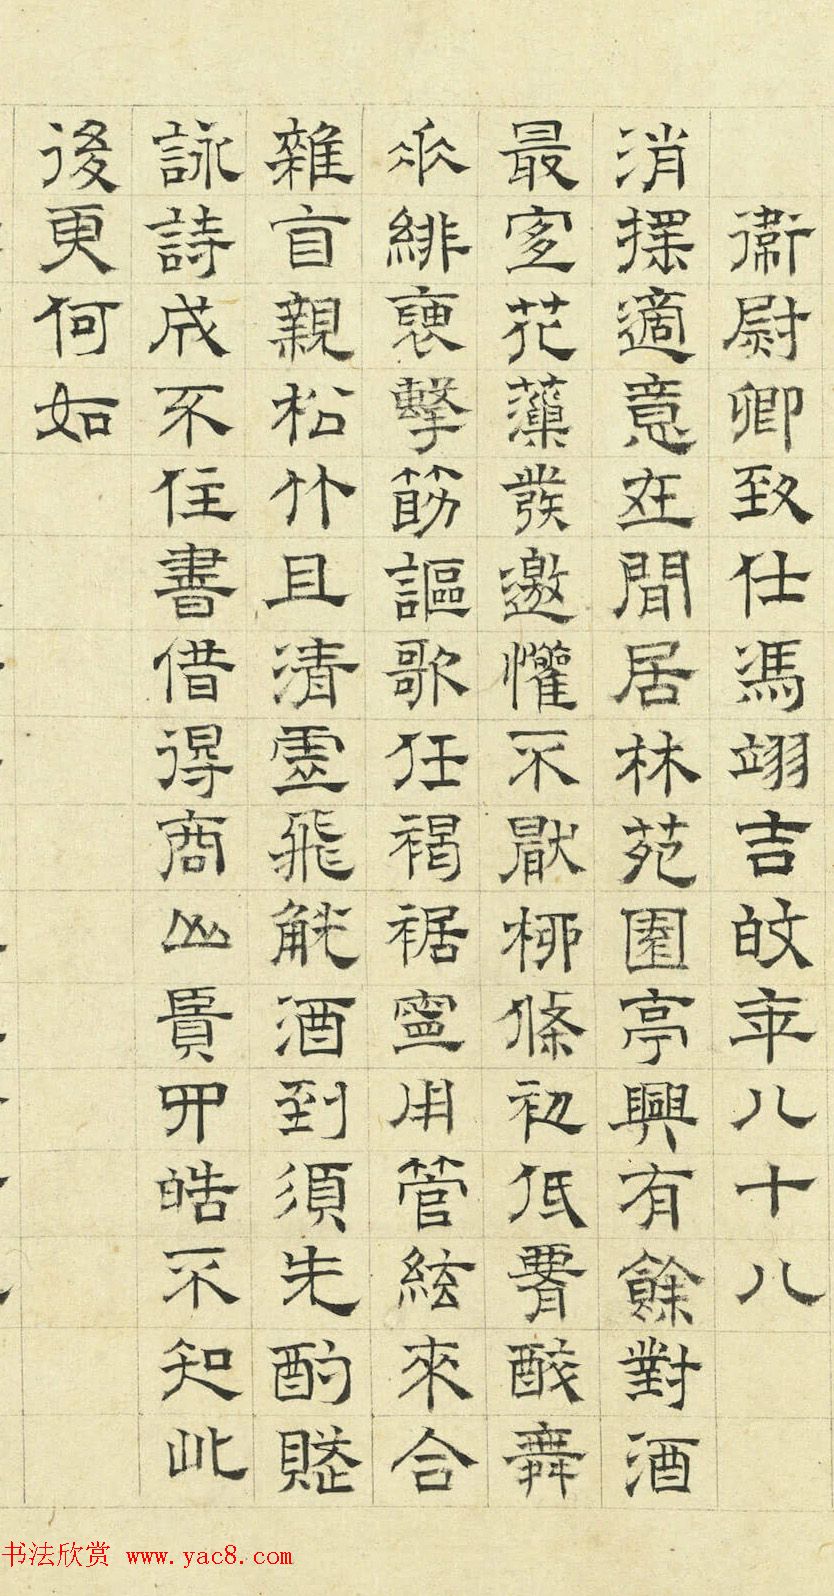 衛尉卿致仕馮翊吉皎年八十八
消適意在閒居林苑園亭興有餘對酒
最宜花藻發邀懽不厭柳條初低腰醉舞
垂緋褎擊筯謳歌任褐裾寧用管絃來合
雜自親松竹且清虛飛觥酒到須先酌賦
詠詩成不住書借得商山賢四皓不知此
後更何如
书法欣赏 www.yac8.com